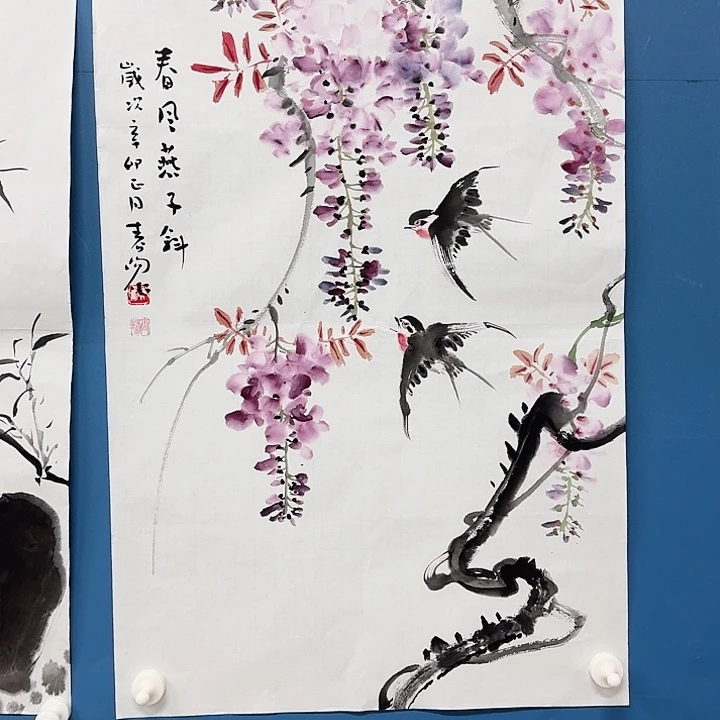 春风燕子斜
歲次辛卯正月春